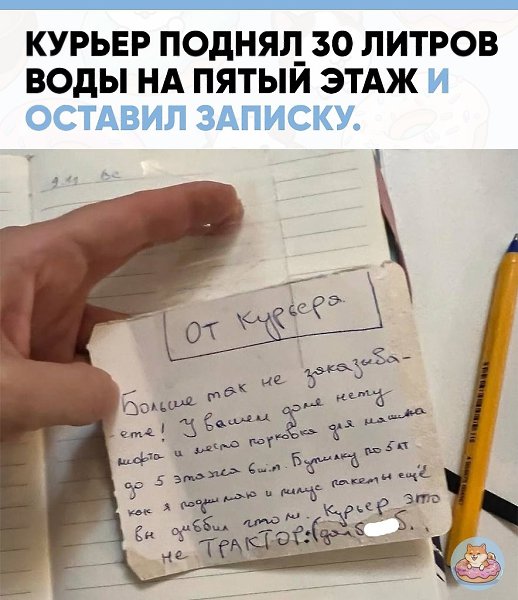 КУРЬЕР ПОДНЯЛ 30 ЛИТРОВ
ВОДЫ НА ПЯТЫЙ ЭТАЖ И
ОСТАВИЛ ЗАПИСКУ.
От Курьера.
Больше так не заказыва-
ете! У вашем доме нету
лифта и место порковка для машина
до 5 этажа 6 шт. Бутилку по 5 лт
как я поднимаю и плюс пакеты ещё
вы Курьер это
не ТРАКТОР: